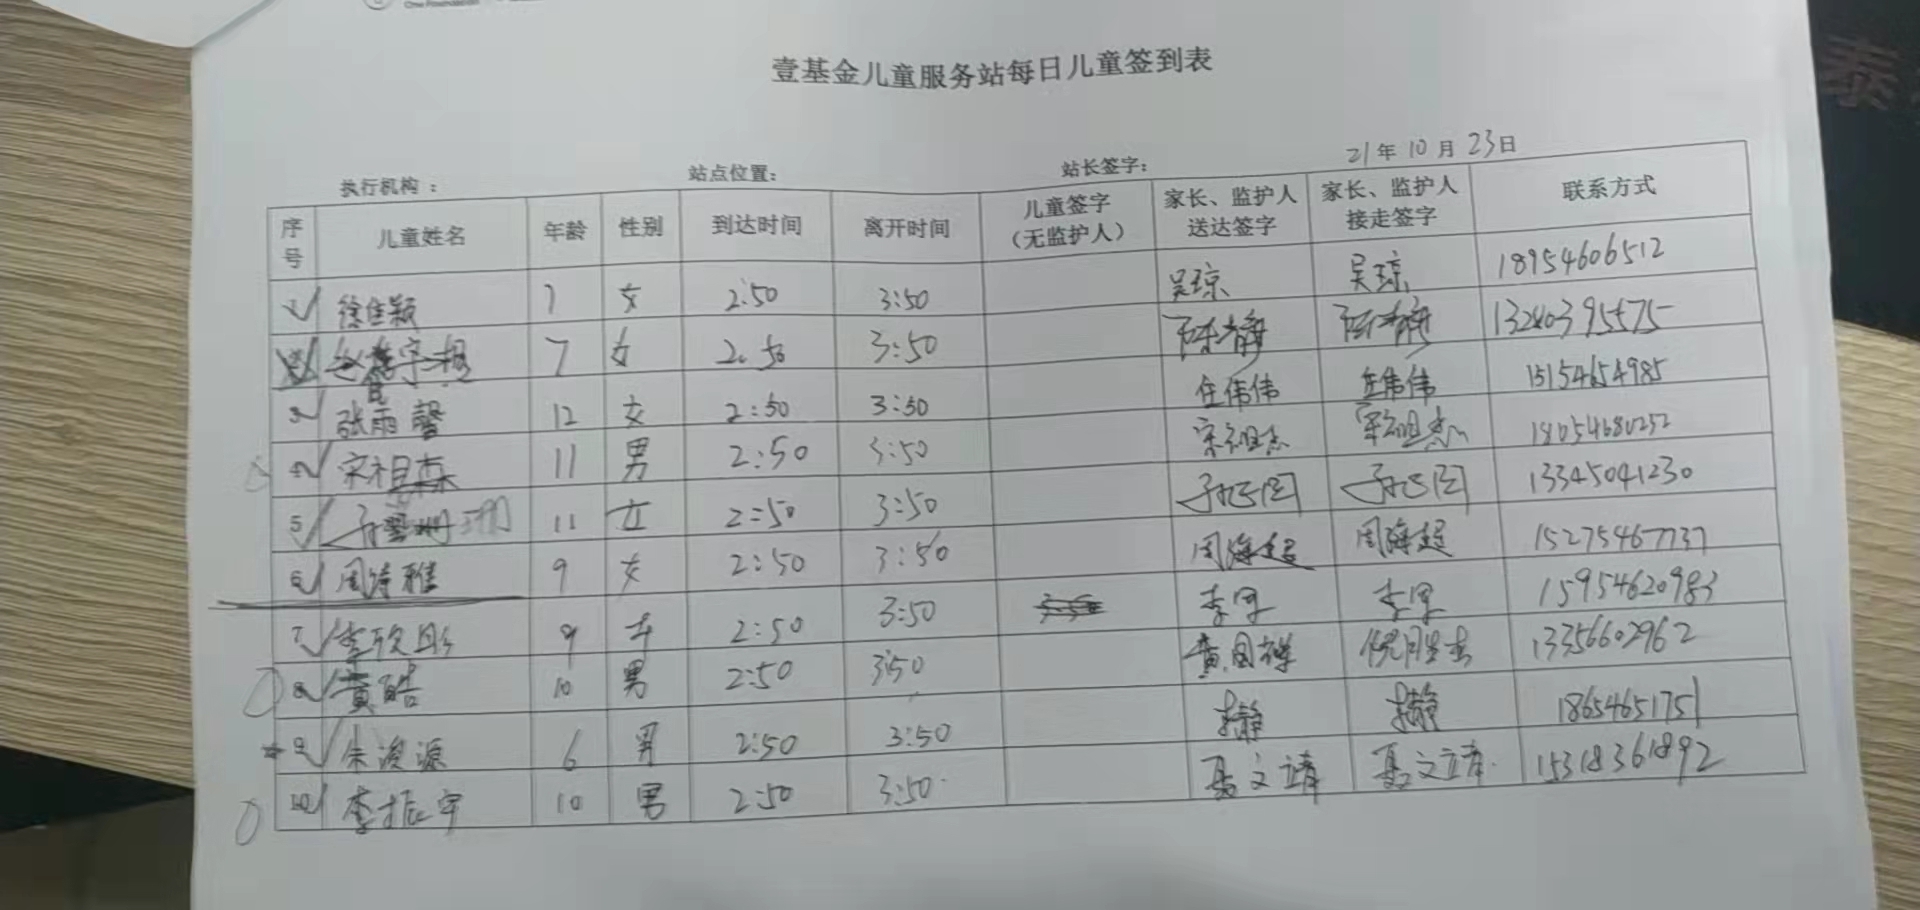 One Foundation
泰
壹基金儿童服务站每日儿童签到表
21年10月23日
执行机构： 站点位置： 站长签字：
序号 儿童姓名 年龄 性别 到达时间 离开时间 儿童签字（无监护人） 家长、监护人送达签字 家长、监护人接走签字 联系方式
徐佳颖 7 女 2:50 3:50 吴琼 吴琼 18954606512
7 女 2:50 3:50 陈静 陈静
3 张雨馨 12 女 2:50 3:50 任伟伟 任伟伟 15154654985
宋祖森 11 男 2:50 3:50 宋祖杰 宋祖杰 18054680252
5 11 女 2:50 3:50 13345041230
6 周诗雅 9 女 2:50 3:50 周海超 周海超 15275467737
7 9 女 2:50 3:50 李军 李军 15954620983
8 黄皓 10 男 2:50 3:50 黄国祥 13356602962
9 朱浚源 6 男 2:50 3:50 18654651751
10 李振宇 10 男 2:50 3:50 聂文靖 聂文靖 15318361892